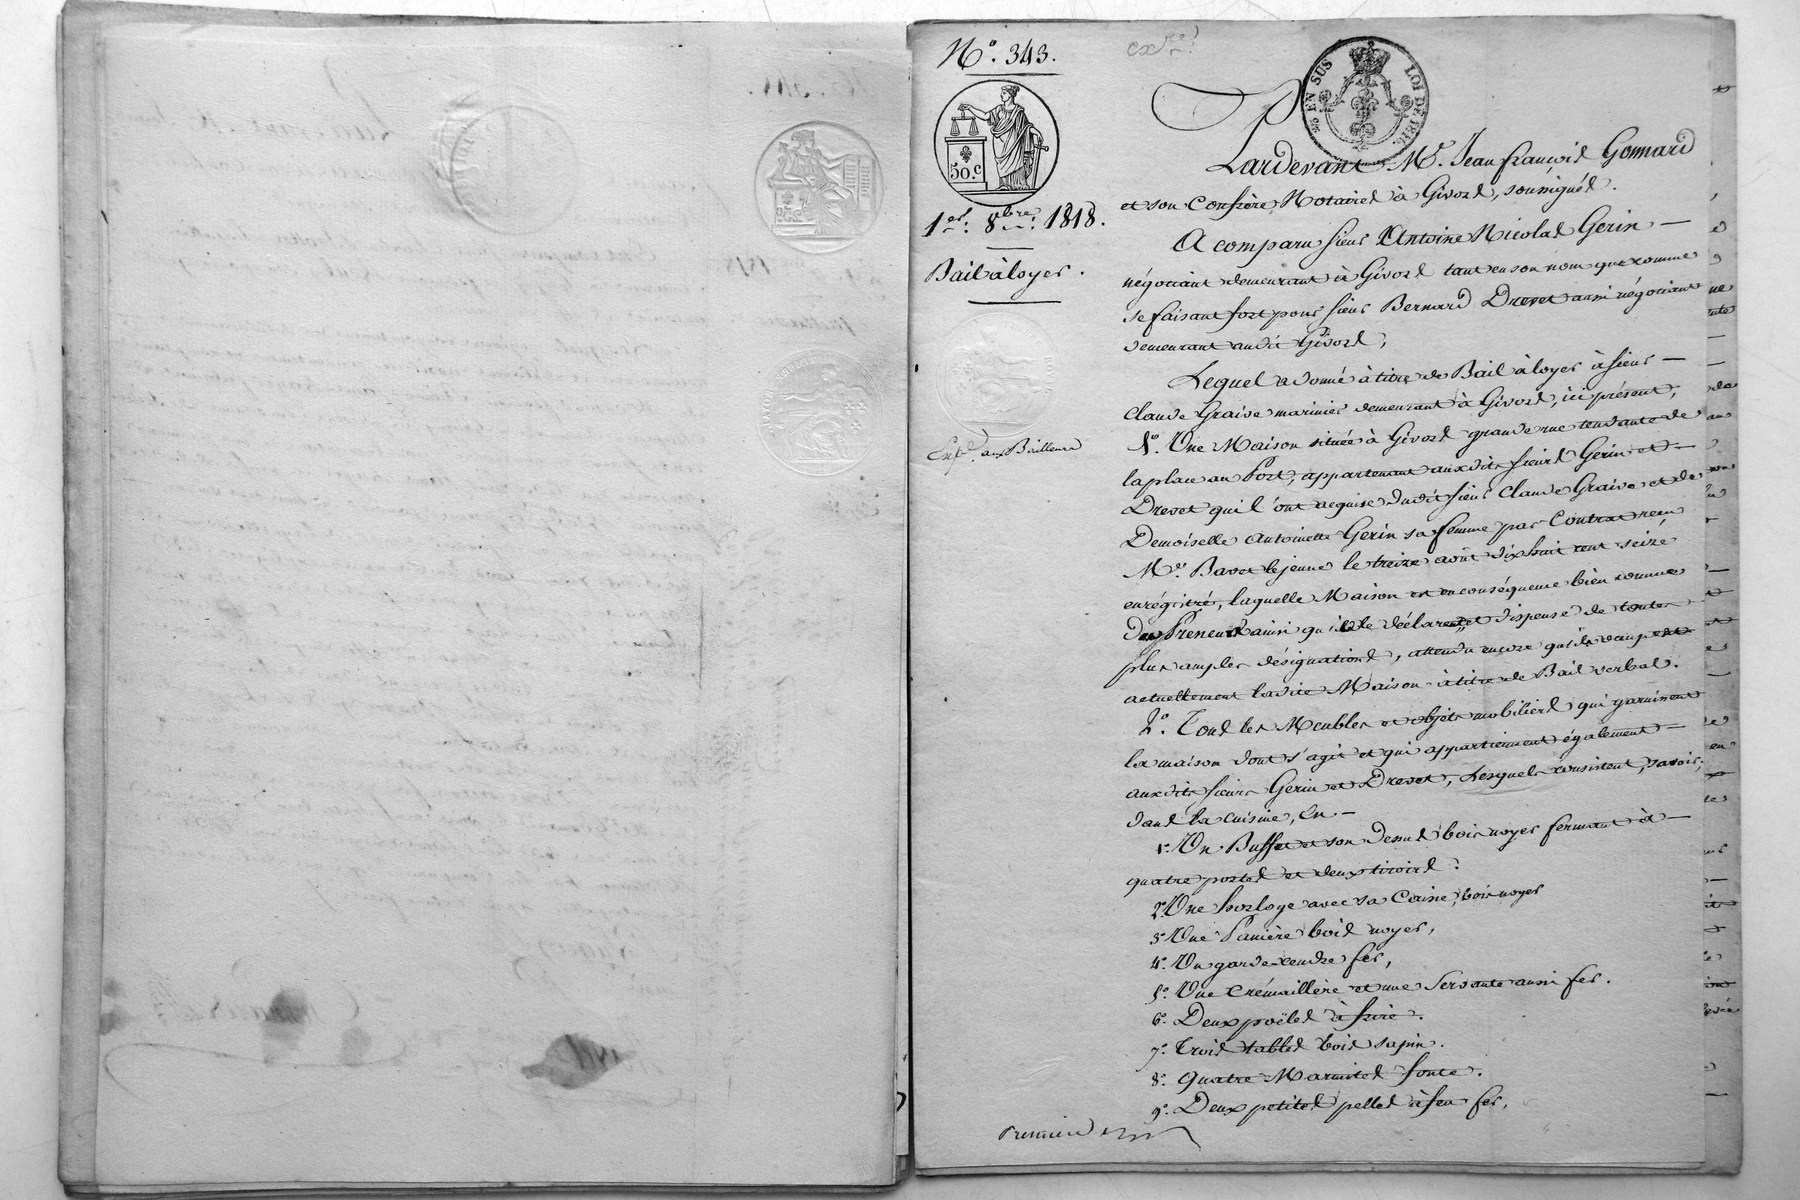 N.º 343.
50.c
EN SUS
LOI DE 1816
1.er 8.bre 1818.
Bail à loyer.
Exp.d aux Bailleurs
Pardevant M.e Jean françois Gomard
et son Confrère Notaires à Givors, soussignés.
A comparu sieur Antoine Nicolas Gerin —
négociant demeurant à Givors tant en son nom que comme
se faisant fort pour sieur Bernard Drevet aussi négociant
demeurant audit Givors,
Lequel a donné à titre de Bail à loyer à sieur —
Claude Graive marinier demeurant à Givors, ici présent,
1.º Une Maison située à Givors grande rue tendante de
la place au Port, appartenant auxdits sieurs Gerin et —
Drevet qui l'ont acquise dudit sieur Claude Graive et de
Demoiselle Antoinette Gerin sa femme par Contrat reçu
M.e Bavet lejeune le treize août dixhuit cent seize,
enrégistré, laquelle Maison est en conséquence bien connue
du Preneur ainsi qu'il le déclare et dispense de toutes
plus amples désignations, attendu encore qu'il occupe
actuellement ladite Maison à titre de Bail verbal.
2.º Tous les Meubles et objets mobiliers qui garnissent
la maison dont s'agit et qui appartiennent également —
auxdits sieurs Gerin et Drevet, Lesquels consistent, savoir;
dans la cuisine, En —
1.º Un Buffet et son Dessus bois noyer fermant à —
quatre portes et deux tiroirs.
2.º Une horloge avec sa Caisse, bois noyer
3.º Une Panière bois noyer,
4.º Un garde cendre fer,
5.º Une Crémaillère et une Servante aussi fer.
6.º Deux poëles à frire.
7.º Trois tables bois sapin.
8.º Quatre Marmites fonte.
9.º Deux petites pelles à feu fer,
Première